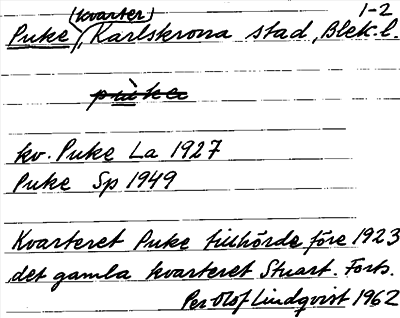 1-2
(kvarter)
Puke, Karlskrona stad, Blek. l.
pùkec
kv. Puke La 1927
Puke Sp 1949
Kvarteret Puke tillhörde före 1923
det gamla kvarteret Stuart. Forts.
Per Olof Lindqvist 1962